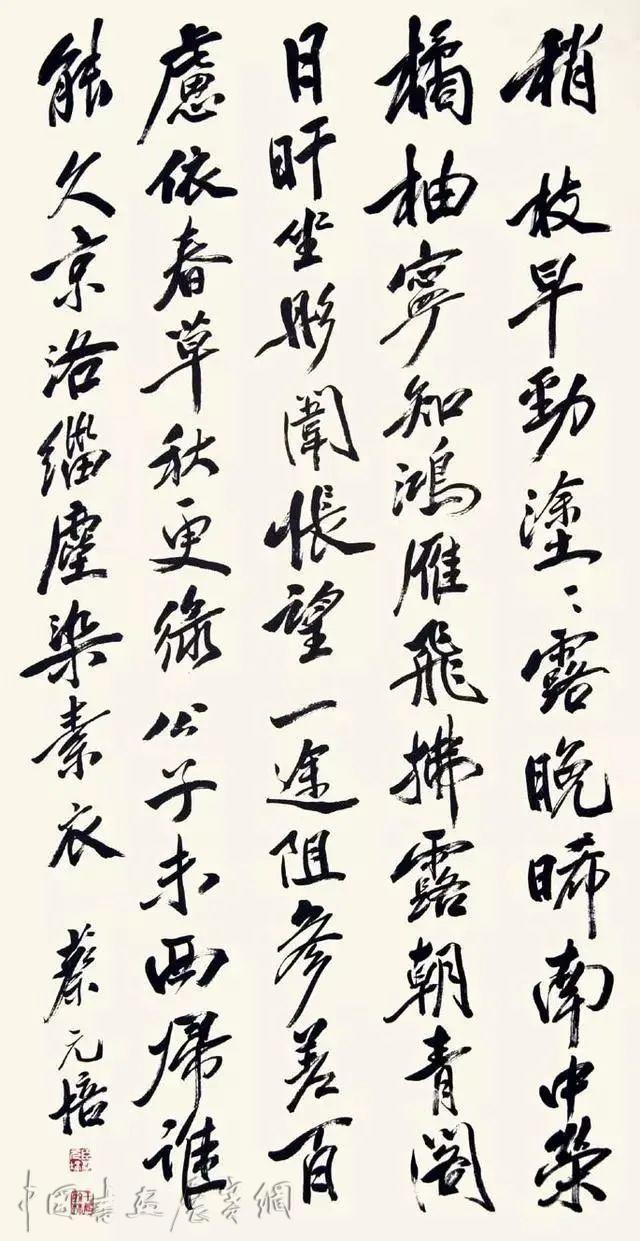 稍枝早勁塗〻露晚晞南中榮
橘柚寧知鴻雁飛拂露朝青閣
日旰坐彤闈悵望一途阻參差百
慮依春草秋更綠公子未西歸誰
能久京洛緇塵染素衣
蔡元培
中國書畫展賽網